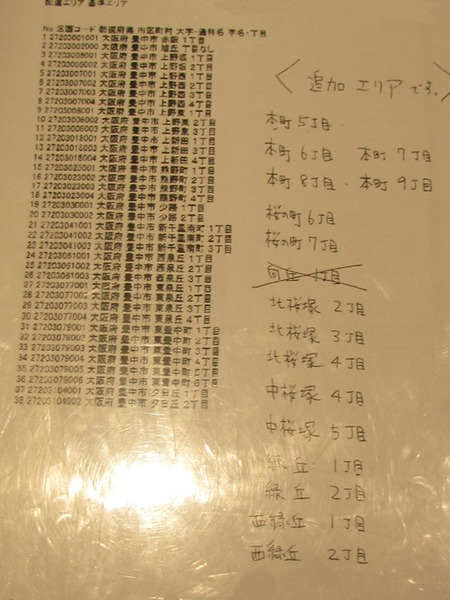 配達エリア 基準エリア
No 図面コード 都道府県 市区町村 大字・通称名 字名・丁目
1 27203001001 大阪府 豊中市 赤阪 1丁目
2 27203002000 大阪府 豊中市 旭丘 丁目なし
3 27203005001 大阪府 豊中市 上野坂 1丁目
4 27203005002 大阪府 豊中市 上野坂 2丁目
5 27203007001 大阪府 豊中市 上野西 1丁目
6 27203007002 大阪府 豊中市 上野西 2丁目
7 27203007003 大阪府 豊中市 上野西 3丁目
8 27203007004 大阪府 豊中市 上野西 4丁目
9 27203006001 大阪府 豊中市 上野東 1丁目
10 27203006002 大阪府 豊中市 上野東 2丁目
11 27203006003 大阪府 豊中市 上野東 3丁目
12 27203018001 大阪府 豊中市 上新田 1丁目
13 27203018003 大阪府 豊中市 上新田 3丁目
14 27203018004 大阪府 豊中市 上新田 4丁目
15 27203023001 大阪府 豊中市 熊野町 1丁目
16 27203023002 大阪府 豊中市 熊野町 2丁目
17 27203023003 大阪府 豊中市 熊野町 3丁目
18 27203023004 大阪府 豊中市 熊野町 4丁目
19 27203030001 大阪府 豊中市 少路 1丁目
20 27203030002 大阪府 豊中市 少路 2丁目
21 27203041001 大阪府 豊中市 新千里南町 1丁目
22 27203041002 大阪府 豊中市 新千里南町 2丁目
23 27203041003 大阪府 豊中市 新千里南町 3丁目
24 27203061001 大阪府 豊中市 西泉丘 1丁目
25 27203061002 大阪府 豊中市 西泉丘 2丁目
26 27203061003 大阪府 豊中市 西泉丘 3丁目
27 27203077001 大阪府 豊中市 東泉丘 1丁目
28 27203077002 大阪府 豊中市 東泉丘 2丁目
29 27203077003 大阪府 豊中市 東泉丘 3丁目
30 27203077004 大阪府 豊中市 東泉丘 4丁目
31 27203079001 大阪府 豊中市 東豊中町 1丁目
32 27203079002 大阪府 豊中市 東豊中町 2丁目
33 27203079003 大阪府 豊中市 東豊中町 3丁目
34 27203079004 大阪府 豊中市 東豊中町 4丁目
35 27203079005 大阪府 豊中市 東豊中町 5丁目
36 27203079006 大阪府 豊中市 東豊中町 6丁目
37 27203104001 大阪府 豊中市 夕日丘 1丁目
38 27203104002 大阪府 豊中市 夕日丘 2丁目
〈追加エリアです。〉
本町5丁目
本町6丁目 本町7丁目
本町8丁目・本町9丁目
桜の町6丁目
桜の町7丁目
向丘 1丁目
北桜塚 2丁目
北桜塚 3丁目
北桜塚 4丁目
中桜塚 4丁目
中桜塚 5丁目
緑丘 1丁目
緑丘 2丁目
西緑丘 1丁目
西緑丘 2丁目